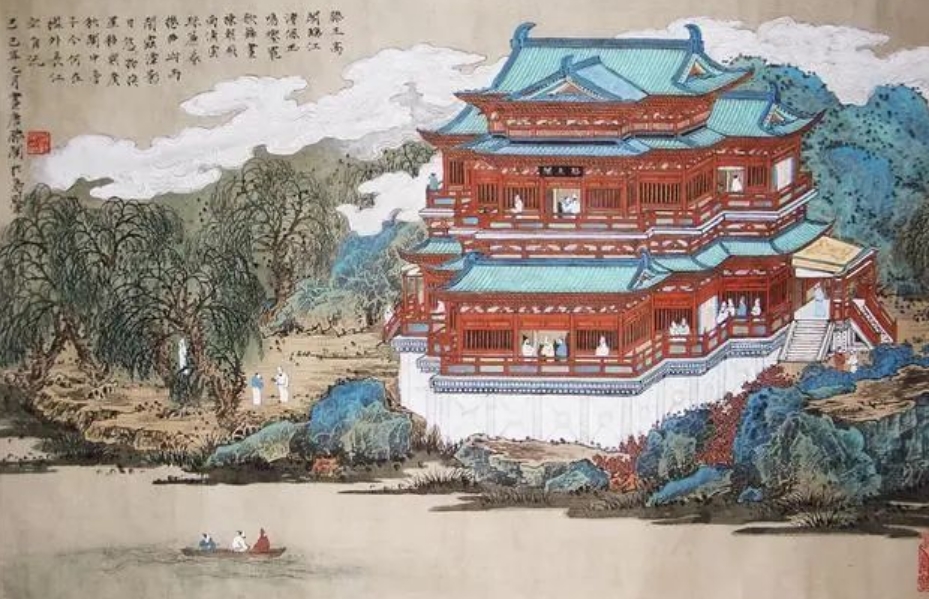 滕王高
閣臨江
渚佩玉
鳴鸞罷
歌舞畫
棟朝飛
南浦雲
珠簾暮
捲西山雨
閒雲潭影
日悠悠物換
星移幾度
秋閣中帝
子今何在
檻外長江
空自流
己巳年七月畫唐滕閣
滕王閣